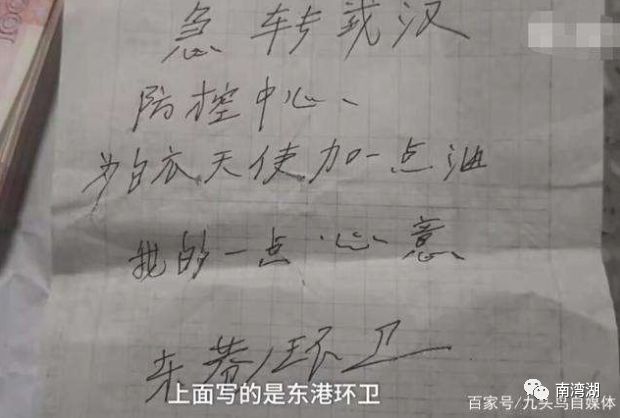 急转武汉
防控中心、
为白衣天使加一点油
我的一点心意
东港环卫
上面写的是东港环卫
南湾湖
百家号/九头鸟自媒体